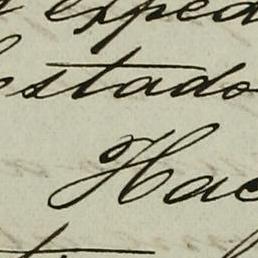 exped
estado
Hac